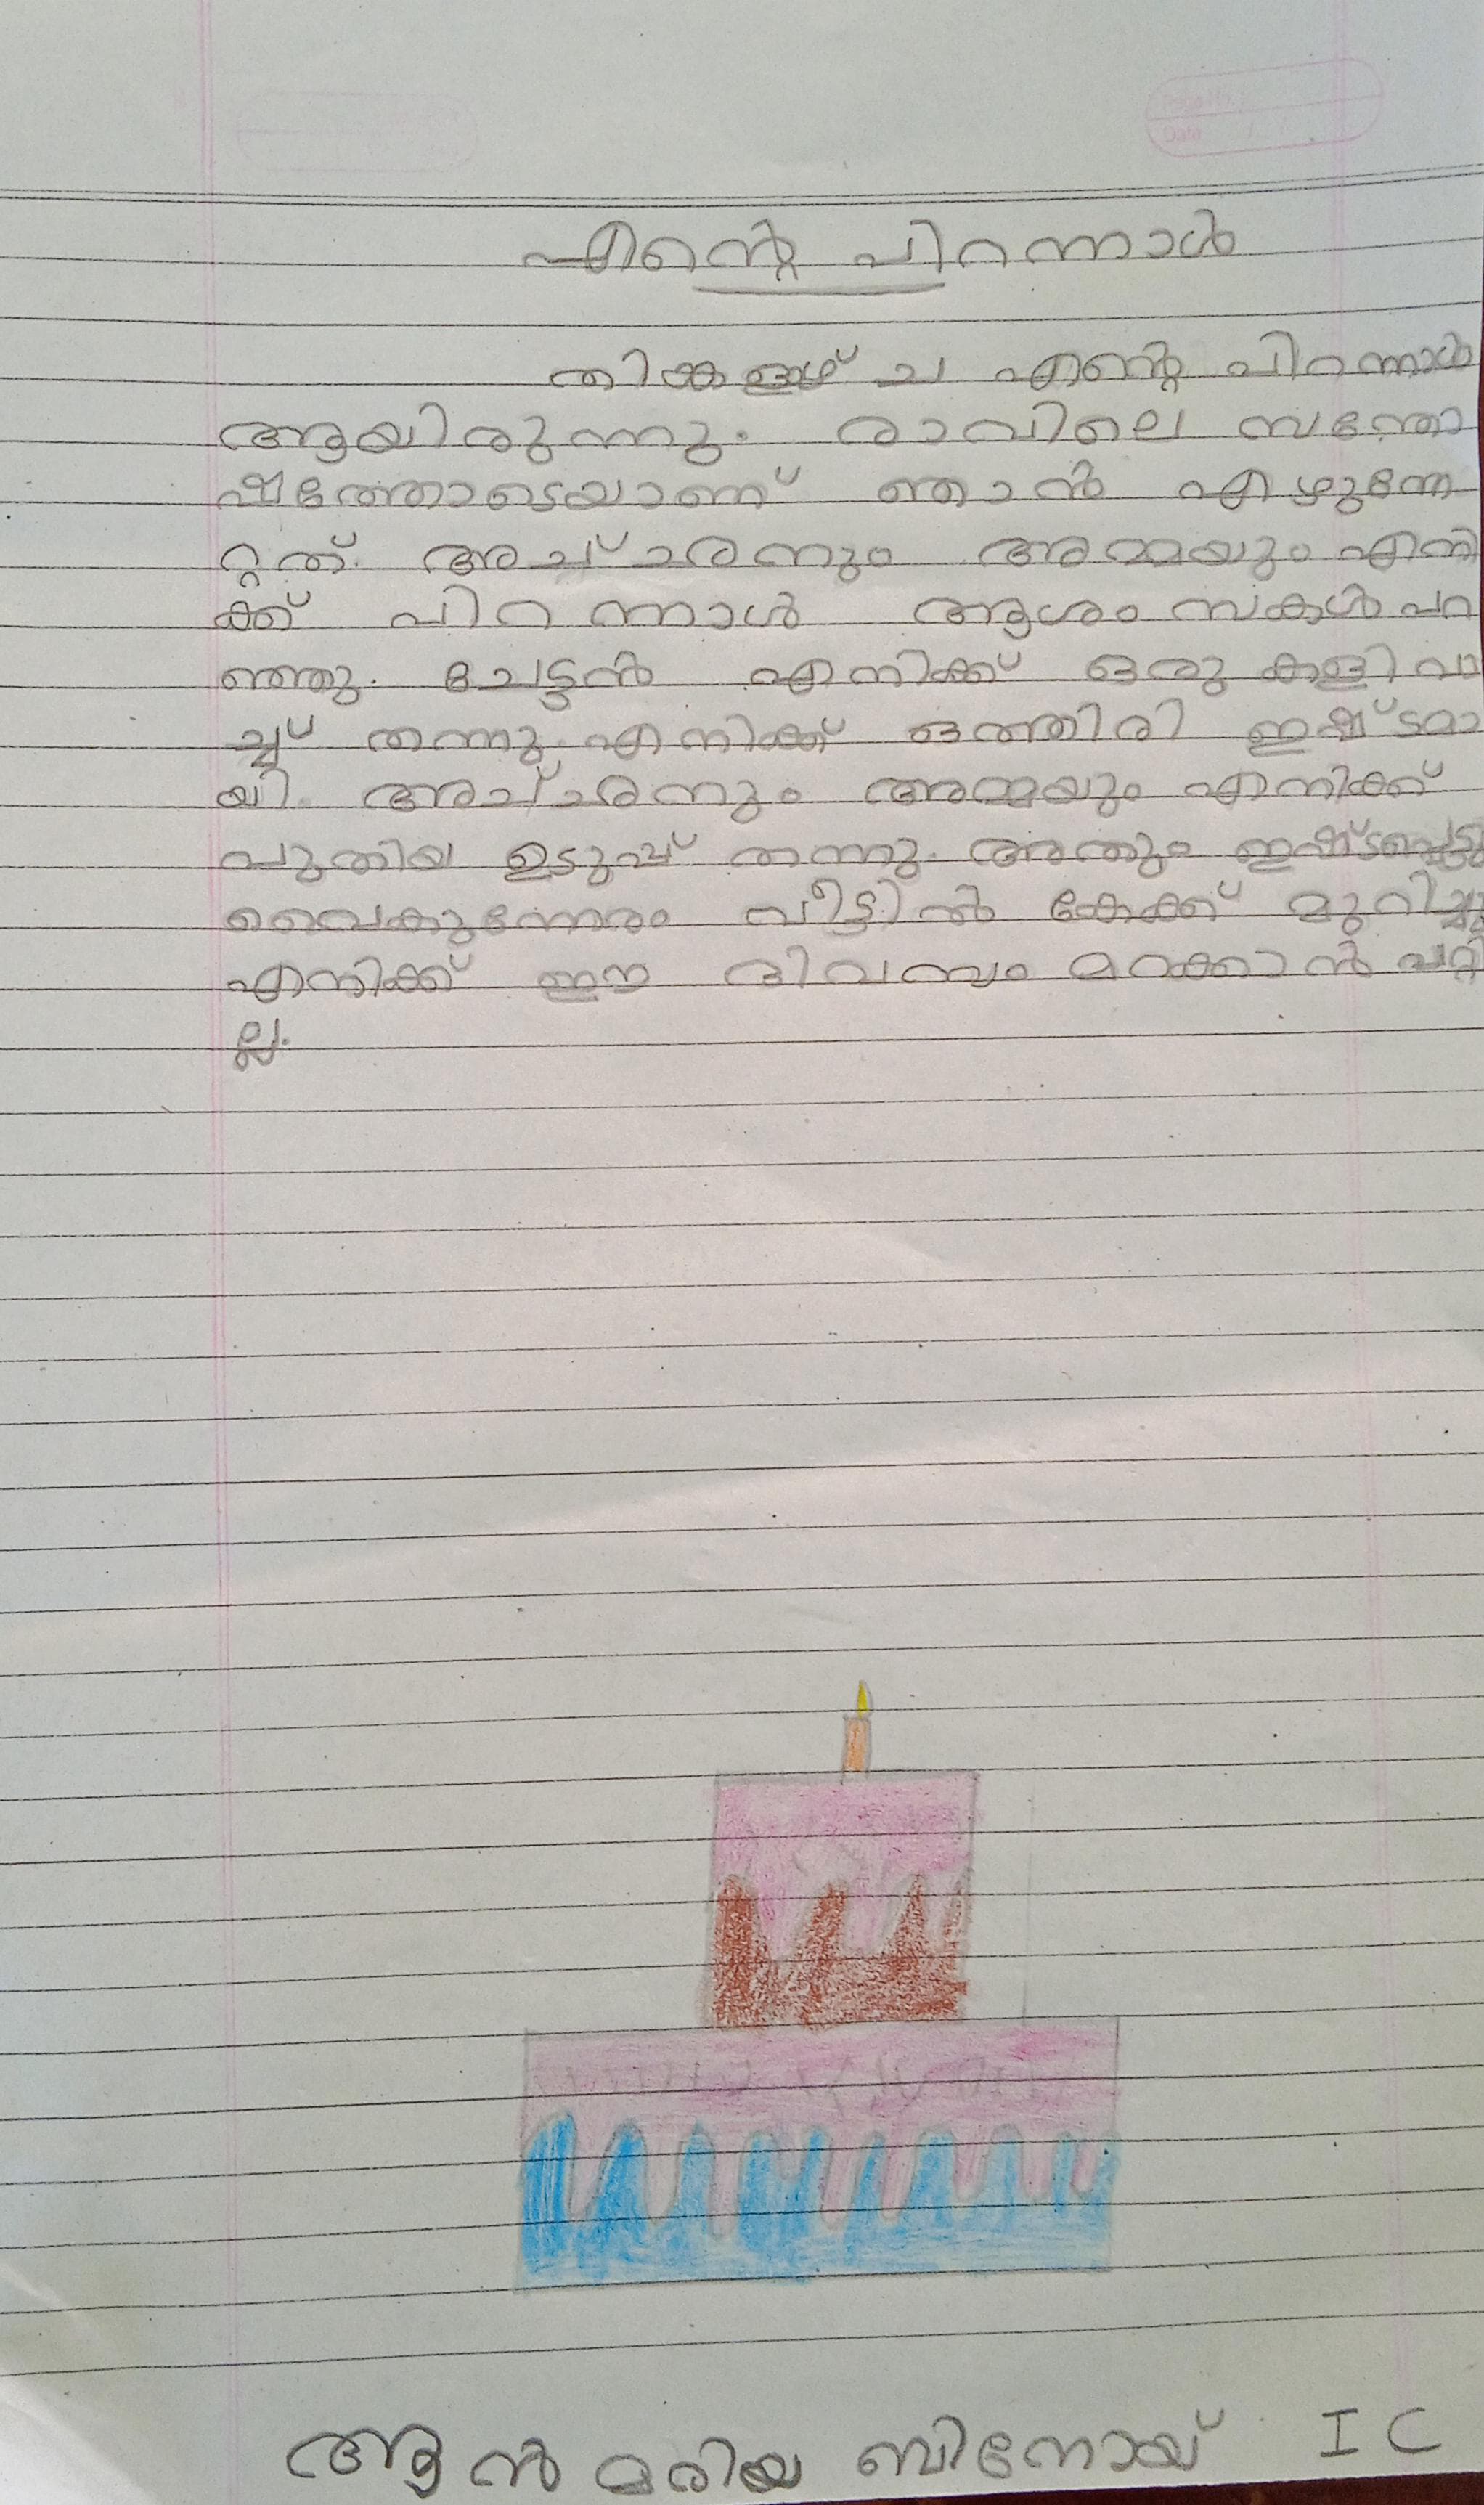 എന്റെ പിറന്നാൾ
തിങ്കളാഴ്ച എന്റെ പിറന്നാൾ
ആയിരുന്നു. രാവിലെ സന്തോ
ഷത്തോടെയാണ് ഞാൻ എഴുന്നേ
റ്റത്. അച്ഛനും അമ്മയും എനി
ക്ക് പിറന്നാൾ ആശംസകൾ പറ
ഞ്ഞു. ചേട്ടൻ എനിക്ക് ഒരു കളിവാ
ച്ച് തന്നു. എനിക്ക് ഒത്തിരി ഇഷ്ടമാ
യി. അച്ഛനും അമ്മയും എനിക്ക്
പുതിയ ഉടുപ്പ് തന്നു. അതും ഇഷ്ടപ്പെട്ടു
വൈകുന്നേരം വീട്ടിൽ കേക്ക് മുറിച്ചു
എനിക്ക് ഈ ദിവസം മറക്കാൻ പറ്റി
ല്ല.
ആൻ മരിയ ബിനോയ് I C